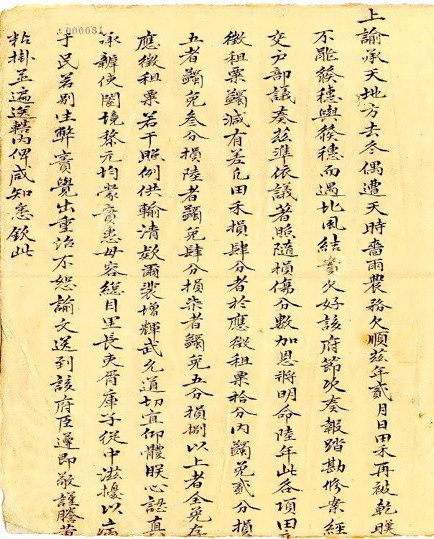 上諭承天地方去冬偶遭天時嗇雨農務欠順茲年貳月日田禾再被乾暵
不能發穗與發穗而遇北風結實欠好該府節次奏報踏勘修案經
交戶部議奏茲準依議著照隨損傷分數加恩將明命陸年此各項田
徵租粟蠲減有差凡田禾損肆分者於應徵租粟拾分內蠲免貳分損
五者蠲免叁分損陸者蠲免肆分損柒者蠲免五分損捌以上者全免存
應徵租粟若干照例供輸清欵爾裴增輝武允道切宜仰體朕心認真
承辦使闔境黎元均蒙實惠毋容總目里長吏胥庫子從中滋擾以病
于民若別生弊竇覺出重治不恕諭文送到該府臣遵即敬謹謄黃
粘掛並遍送轄內俾咸知悉欽此
000081